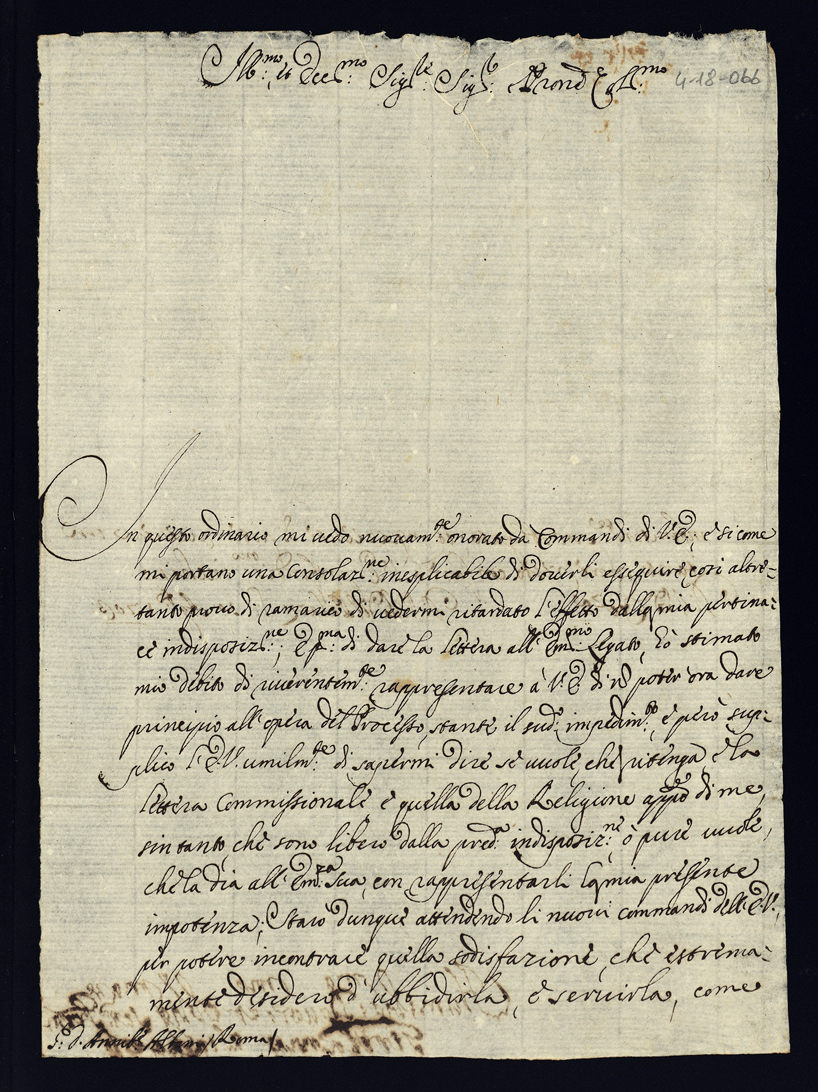 Ill:mo, et Ecc:mo Sig:re Sig:r Pron Col:mo
4-18-066
In questo ordinario mi vedo nuovam:te onorato da Commandi di V: E:, e si come
mi portano una Consolaz:ne inesplicabile di doverli esseguire, così altre-
tanto provo di ramarico di vedermi ritardato l'effetto dalla mia pertina:
ce indisposiz:ne; E p:ma di dare la lettera all' Em:mo Legato, hò stimato
mio debito di riverentem:te rappresentare à V: E di nõ poter ora dare
principio all' opera del Processo, stante il sud: impedim:to, e però sup:
plico l'E: V: umilm:te di sapermi dire se vuole, che ritenga, e la
lettera Commissionale e quella della Religione appõ di me,
sin tanto, che sono libero dalla pred:a indisposiz:ne, ò pure vuole,
che la dia all' Em:za Sua, con rappresentarli la mia presente
impotenza; Starò dunque attendendo li nuovi commandi dell' E: V:,
per potere incontrare quella sodisfazione, che estrema:
mente desidero d' ubbidirla, e servirla, come
S: D. Annib:e Albani / Roma /